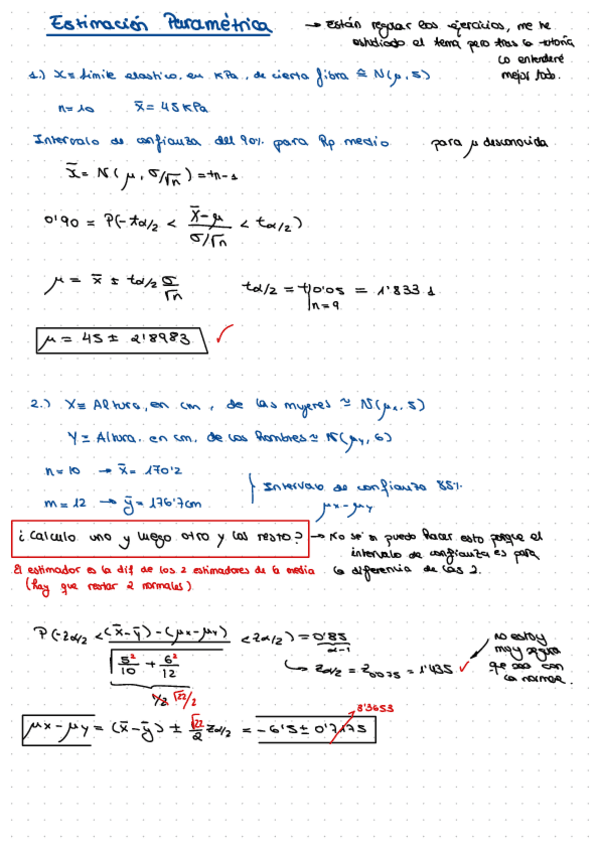 Estimación Paramétrica → Están regular los ejercicios, me he
estudiado el tema pero tras la tutoría
lo entenderé
mejor todo.
1.) X≡ límite elástico, en KPa, de cierta fibra ≅ N(μ, 5)
n=10 x̄= 45KPa
Intervalo de confianza del 90% para Rp medio para μ desconocida
x̄= N(μ, σ/√n) = tn-1
0'90 = P(-tα/2 < (x̄-μ)/(σ/√n) < tα/2)
μ = x̄ ± tα/2 σ/√n tα/2 = t0'05 = 1'8331
n=9
μ = 45 ± 2'8983 ✓
2.) X≡ Altura, en cm, de las mujeres ≃ N(μx, 5)
Y≡ Altura, en cm, de los hombres ≃ N(μy, 6)
n=10 → x̄= 170'2
Intervalo de confianza 85%
m=12 → ȳ= 176'7cm
μx-μy
¿Calculo uno y luego otro y los resto? → No sé si puedo hacer esto porque el
intervalo de confianza es para
El estimador es la dif de los 2 estimadores de la media
la diferencia de las 2.
(hay que restar 2 normales)
P(-zα/2 < ((x̄-ȳ)-(μx-μy))/√(5²/10 + 6²/12) < zα/2) = 0'85
α-1
no estoy
muy segura
que sea con
la normal.
↳ zα/2 = z0'075 = 1'435 ✓
1/2 √22/2
3'3653
μx-μy = (x̄-ȳ) ± √22/2 zα/2 = -6'5 ± 0'7175